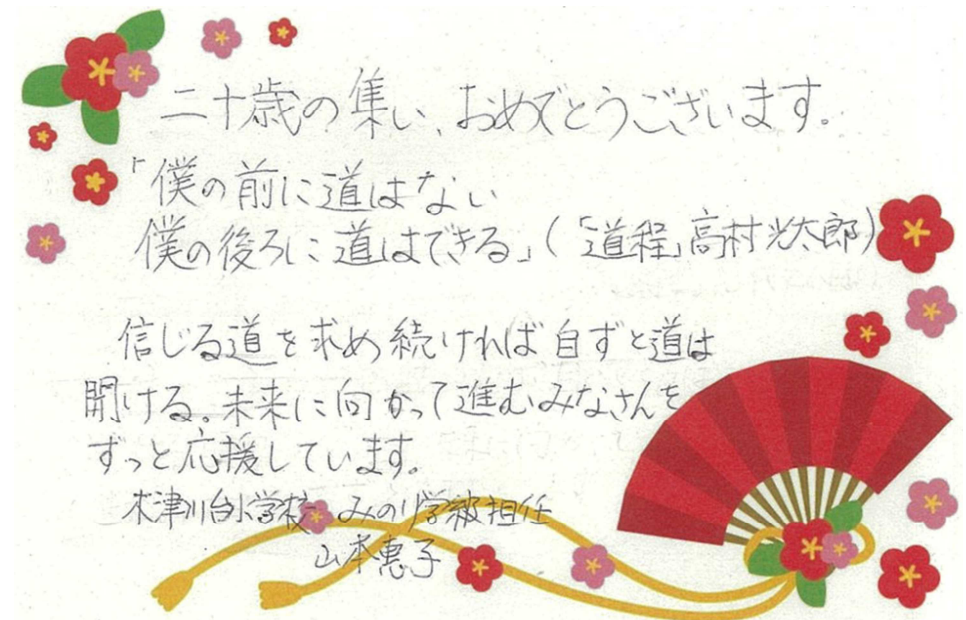 二十歳の集い、おめでとうございます。
「僕の前に道はない
僕の後ろに道はできる」(「道程」高村光太郎)
信じる道を求め続ければ自ずと道は
開ける。未来に向かって進むみなさんを
ずっと応援しています。
木津川台小学校 みのり学級担任
山本恵子